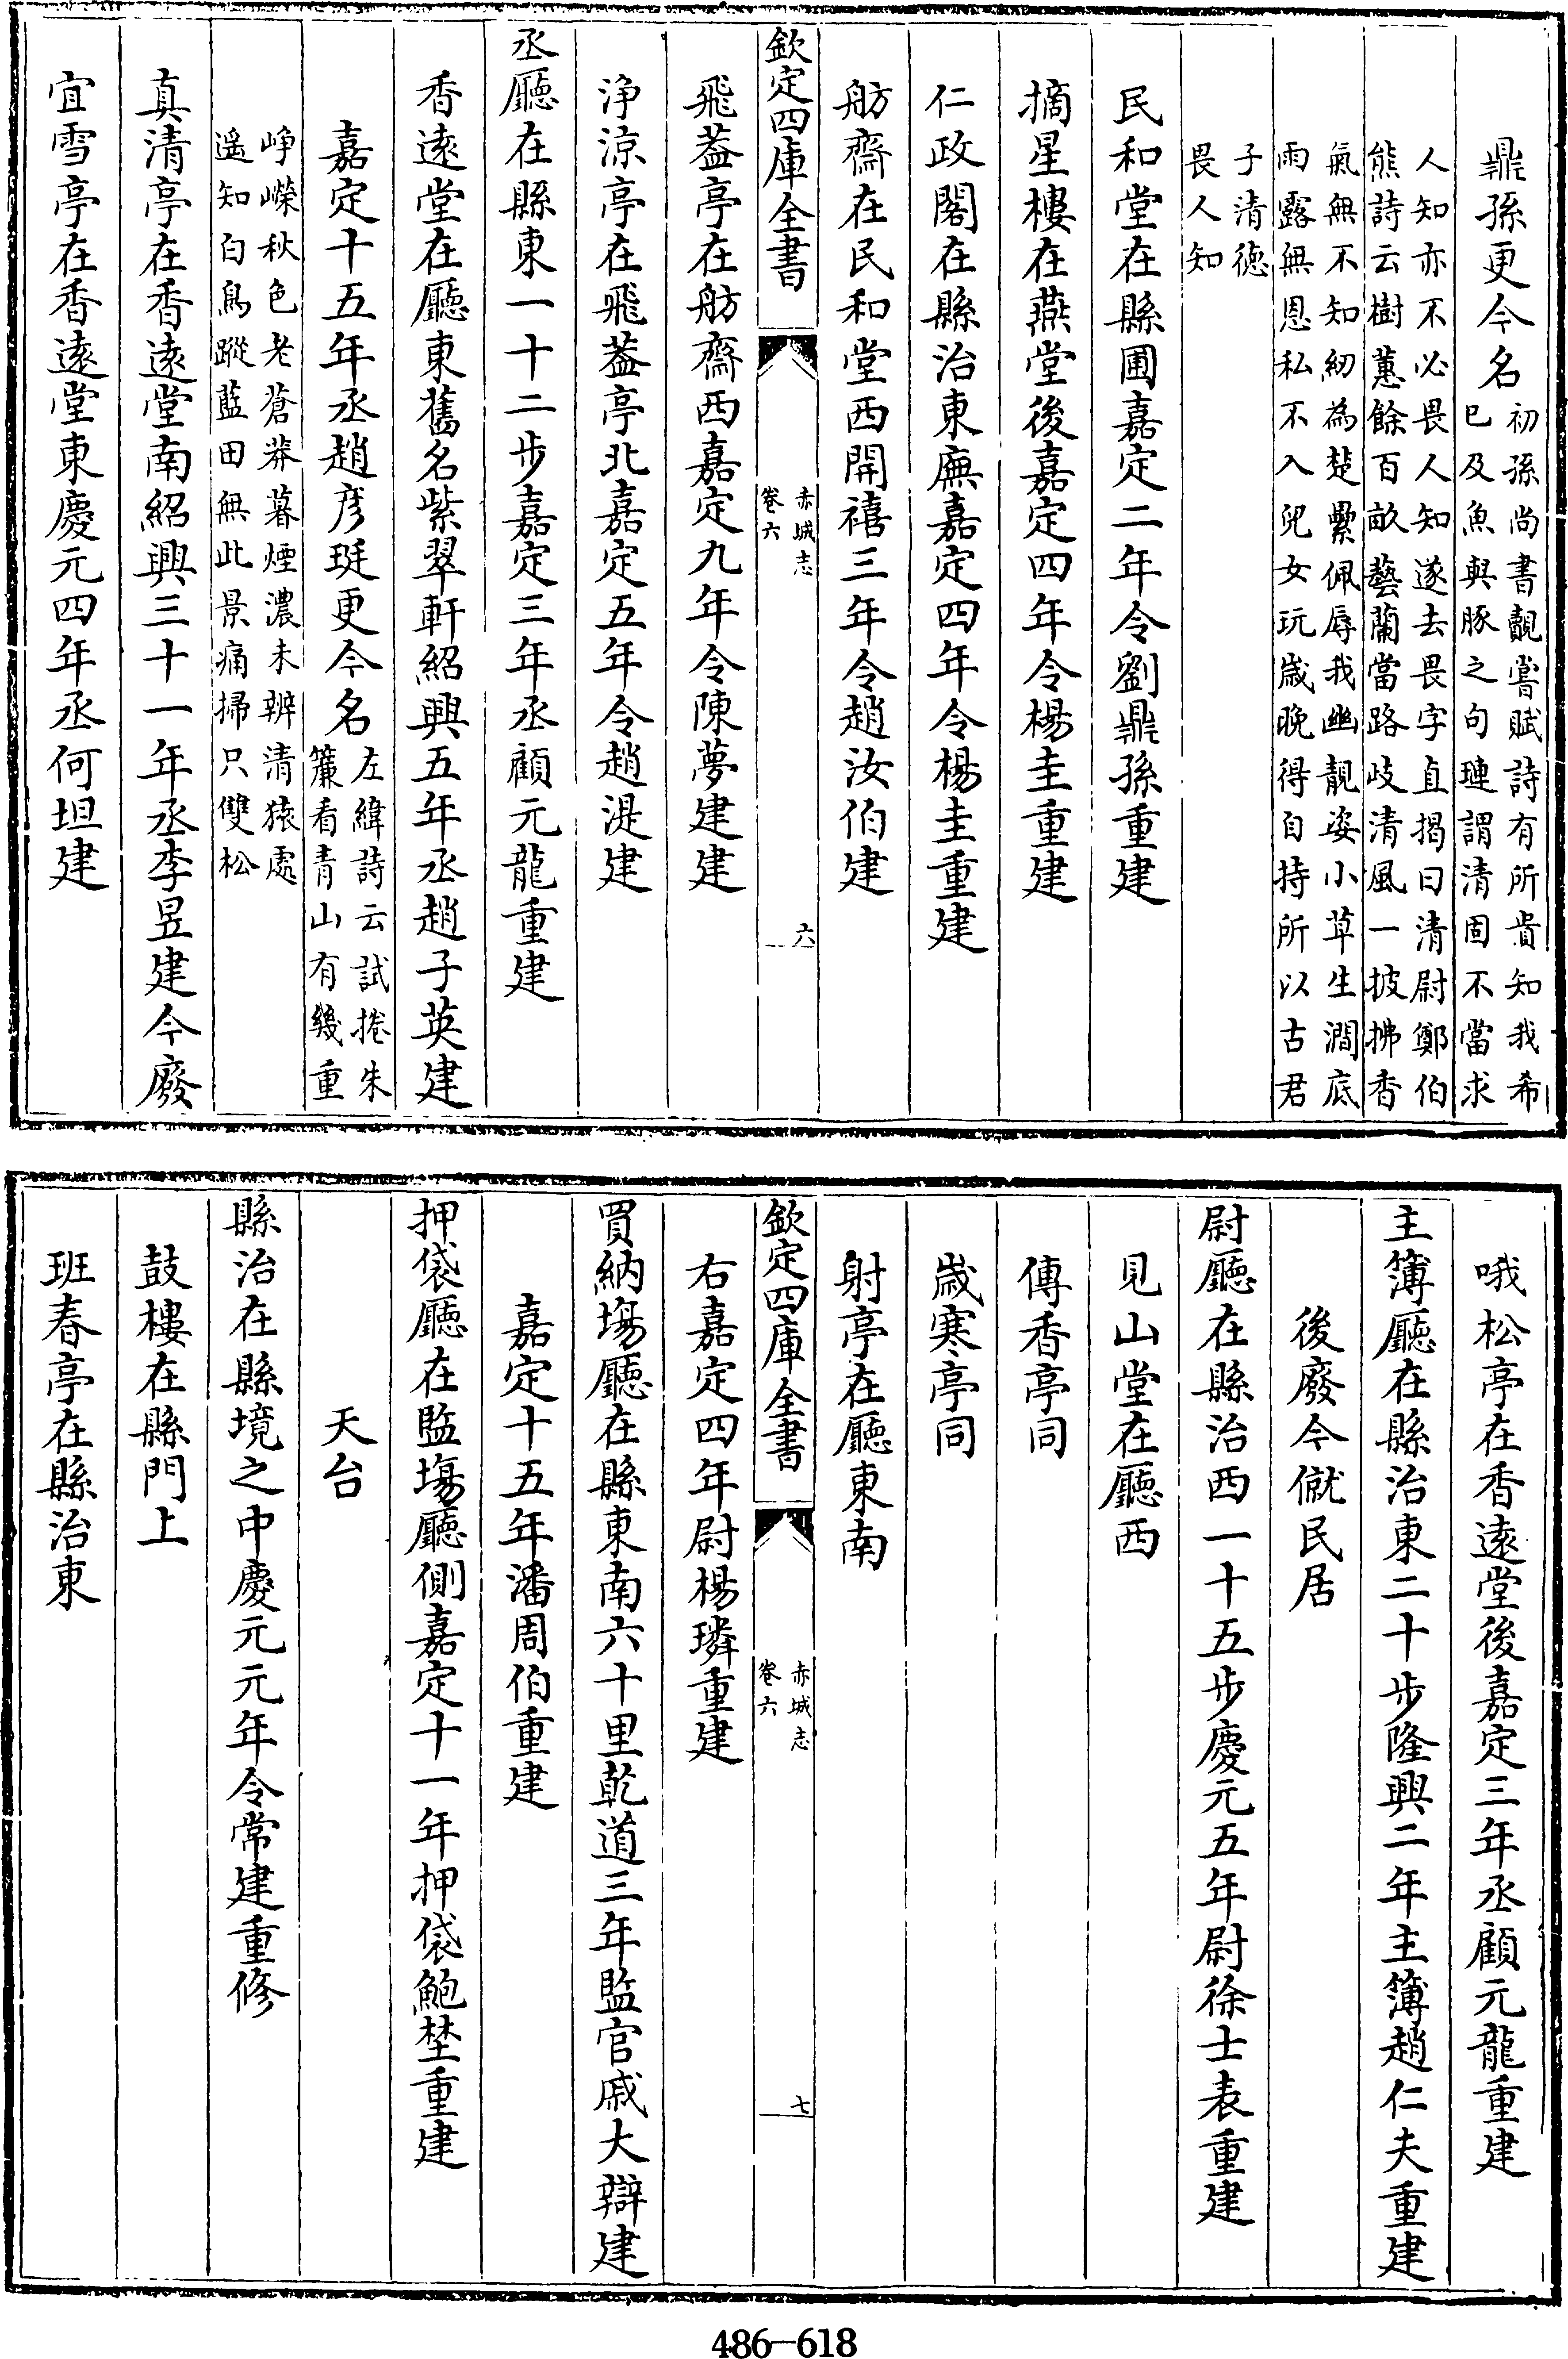 鼎孫更今名初孫尚書覿嘗賦詩有所貴知我希
已及魚與豚之句璉謂清固不當求
人知亦不必畏人知遂去畏字直揭曰清尉鄭伯
熊詩云樹蕙餘百畝藝蘭當路岐清風一披拂香
氣無不知紉為楚纍佩辱我幽靚姿小草生澗底
雨露無恩私不入兒女玩歲晚得自持所以古君
子清德
畏人知
民和堂在縣圃嘉定二年令劉鼎孫重建
摘星樓在燕堂後嘉定四年令楊圭重建
仁政閣在縣治東廡嘉定四年令楊圭重建
舫齋在民和堂西開禧三年令趙汝伯建
欽定四庫全書
赤城志
卷六
六
飛葢亭在舫齋西嘉定九年令陳夢建建
淨涼亭在飛葢亭北嘉定五年令趙湜建
丞廳在縣東一十二步嘉定三年丞顧元龍重建
香遠堂在廳東舊名紫翠軒紹興五年丞趙子英建
嘉定十五年丞趙彦珽更今名左緯詩云試捲朱
簾看青山有幾重
崢嶸秋色老蒼莽暮煙濃未辨清猿處
遥知白鳥蹤藍田無此景痛掃只雙松
真清亭在香遠堂南紹興三十一年丞李昱建今廢
宜雪亭在香遠堂東慶元四年丞何坦建
哦松亭在香遠堂後嘉定三年丞顧元龍重建
主簿廳在縣治東二十步隆興二年主簿趙仁夫重建
後廢今僦民居
尉廳在縣治西一十五步慶元五年尉徐士表重建
見山堂在廳西
傳香亭同
歲寒亭同
射亭在廳東南
欽定四庫全書
赤城志
卷六
七
右嘉定四年尉楊璘重建
買納塲廳在縣東南六十里乾道三年監官戚大辯建
嘉定十五年潘周伯重建
押袋廳在監塲廳側嘉定十一年押袋鮑埜重建
天台
縣治在縣境之中慶元元年令常建重修
鼓樓在縣門上
班春亭在縣治東
486-618